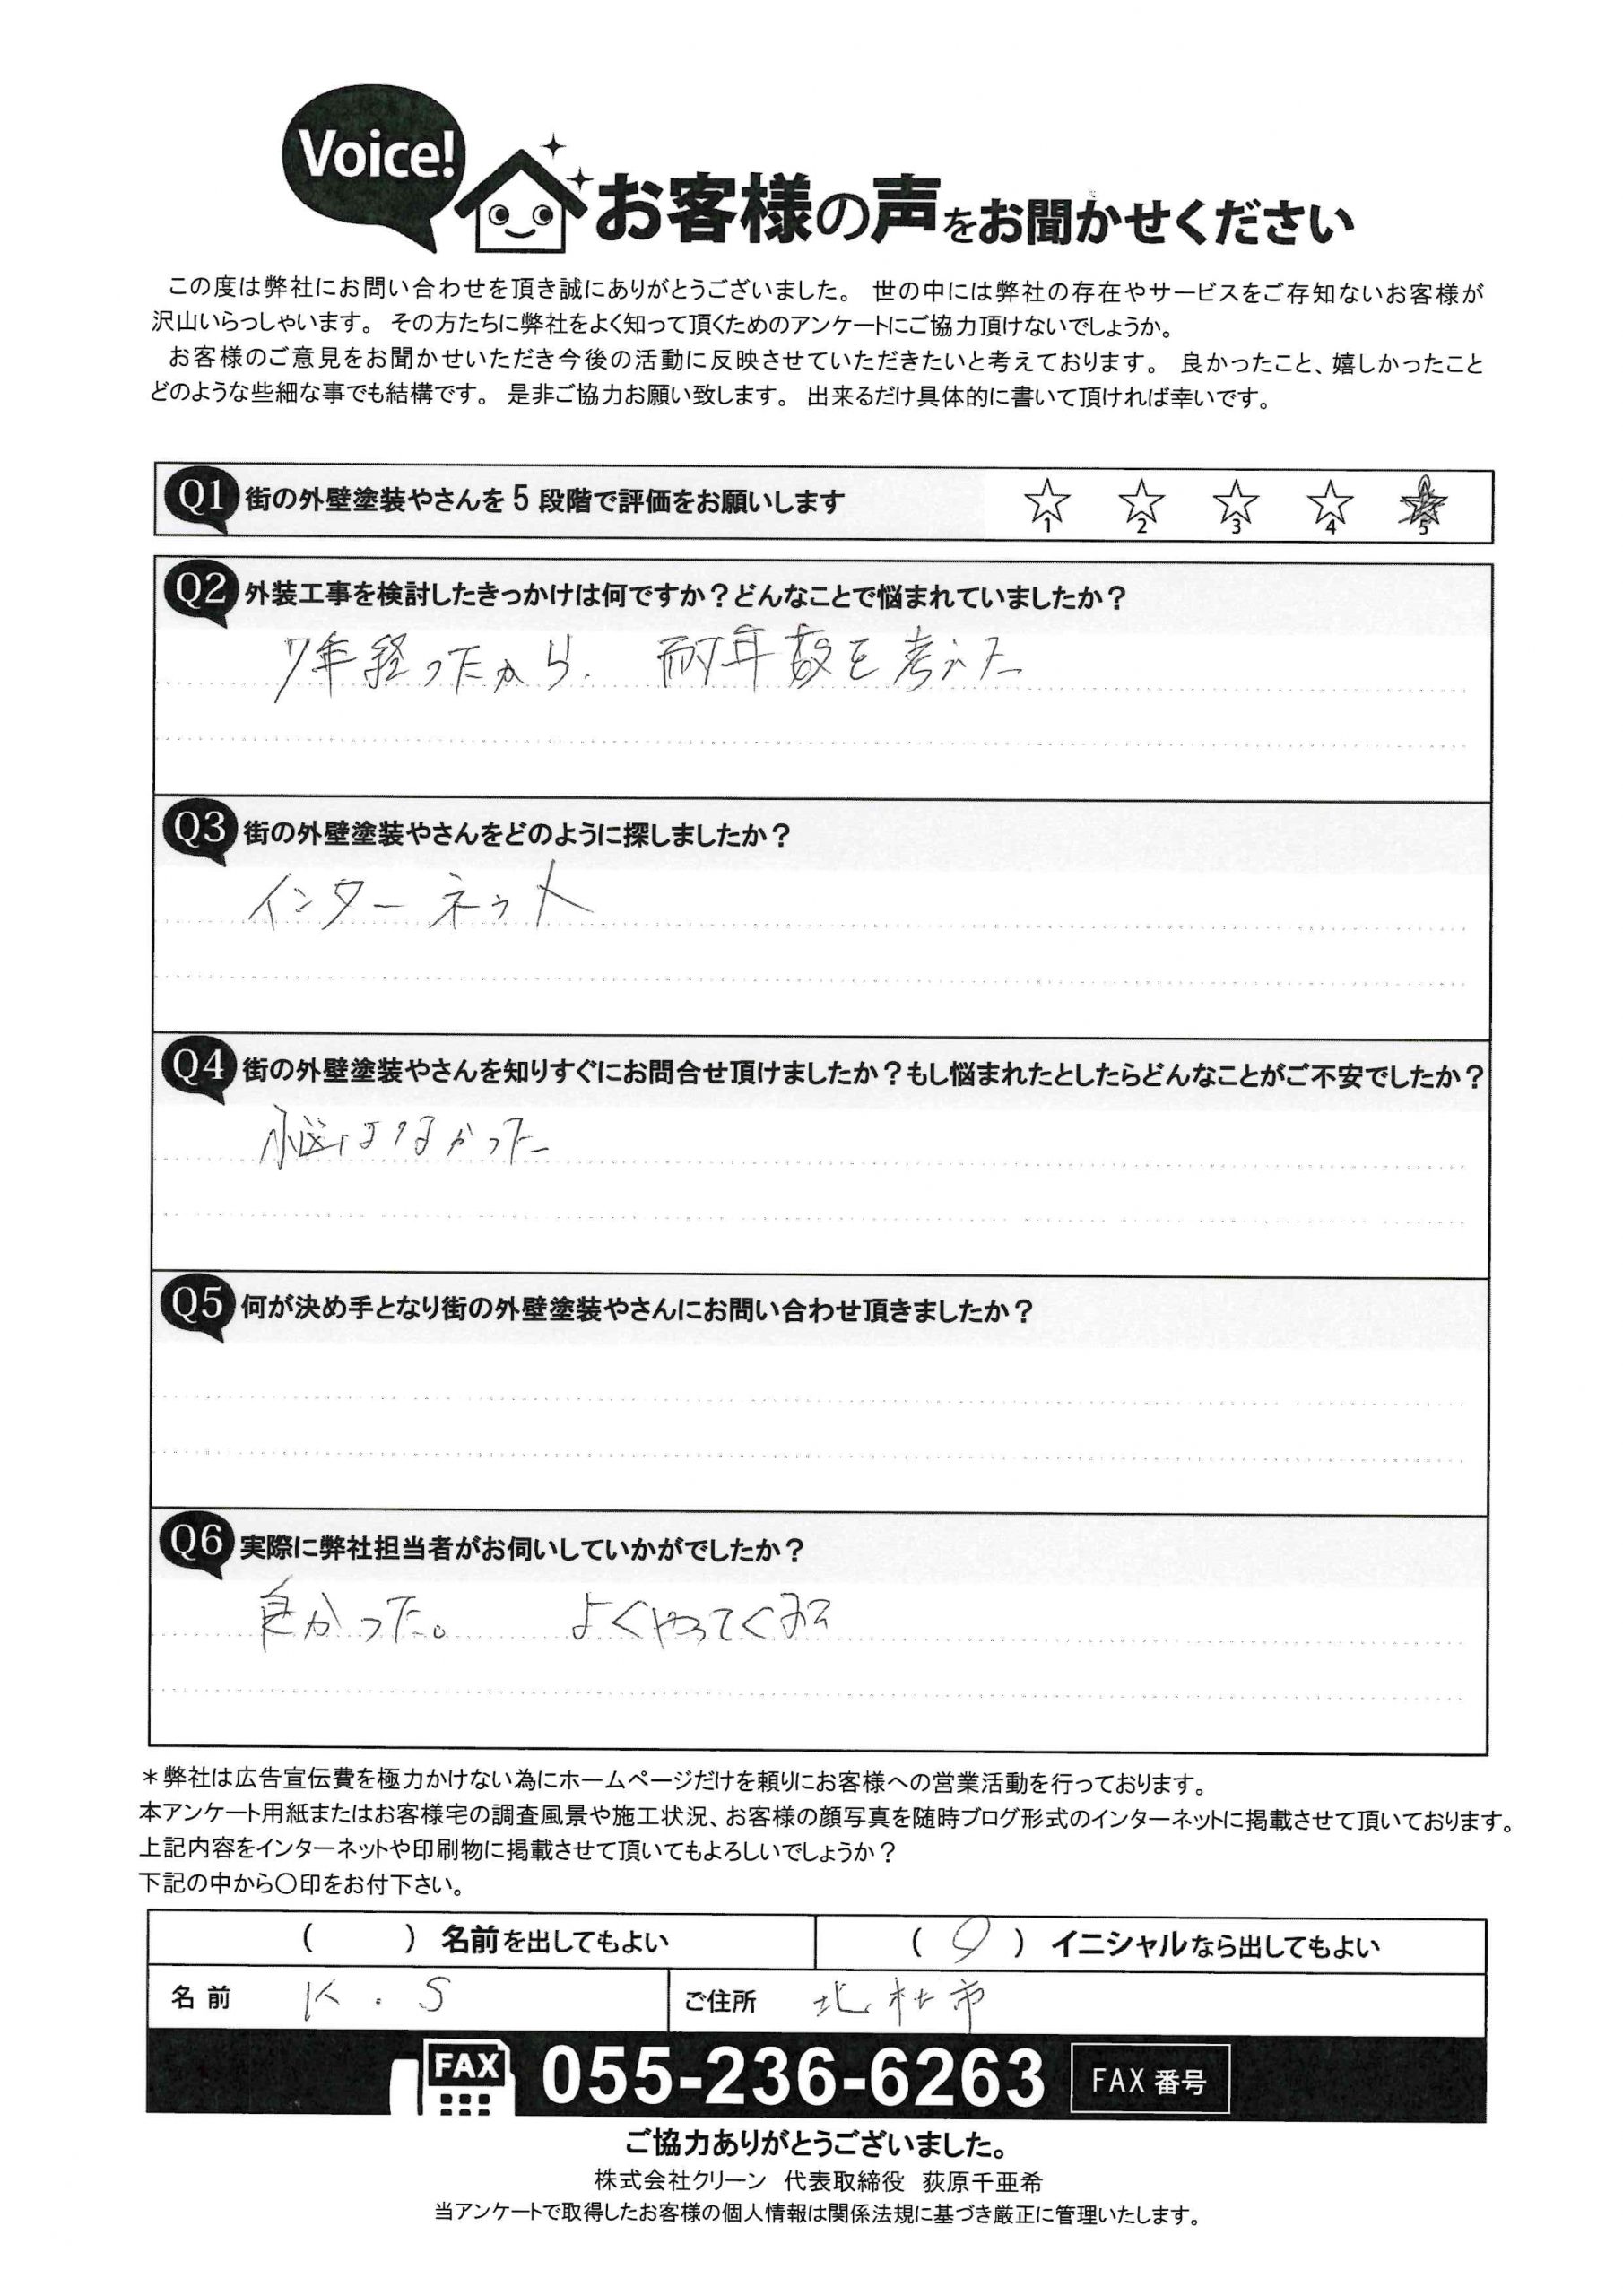 Voice!
お客様の声をお聞かせください
この度は弊社にお問い合わせを頂き誠にありがとうございました。 世の中には弊社の存在やサービスをご存知ないお客様が
沢山いらっしゃいます。 その方たちに弊社をよく知って頂くためのアンケートにご協力頂けないでしょうか。
お客様のご意見をお聞かせいただき今後の活動に反映させていただきたいと考えております。 良かったこと、嬉しかったこと
どのような些細な事でも結構です。 是非ご協力お願い致します。 出来るだけ具体的に書いて頂ければ幸いです。
Q1 街の外壁塗装やさんを5段階で評価をお願いします ☆1 ☆2 ☆3 ☆4 ★5
Q2 外装工事を検討したきっかけは何ですか？どんなことで悩まれていましたか？
7年経ったから. 耐年数を考えた
Q3 街の外壁塗装やさんをどのように探しましたか？
インターネット
Q4 街の外壁塗装やさんを知りすぐにお問合せ頂けましたか？もし悩まれたとしたらどんなことがご不安でしたか？
はなかった
Q5 何が決め手となり街の外壁塗装やさんにお問い合わせ頂きましたか？
Q6 実際に弊社担当者がお伺いしていかがでしたか？
良かった。 よくやってくれる
＊弊社は広告宣伝費を極力かけない為にホームページだけを頼りにお客様への営業活動を行っております。
本アンケート用紙またはお客様宅の調査風景や施工状況、お客様の顔写真を随時ブログ形式のインターネットに掲載させて頂いております。
上記内容をインターネットや印刷物に掲載させて頂いてもよろしいでしょうか？
下記の中から〇印をお付下さい。
（　　）名前を出してもよい （○）イニシャルなら出してもよい
名前 K.S ご住所 北杜市
FAX 055-236-6263 FAX 番号
ご協力ありがとうございました。
株式会社クリーン 代表取締役 荻原千亜希
当アンケートで取得したお客様の個人情報は関係法規に基づき厳正に管理いたします。